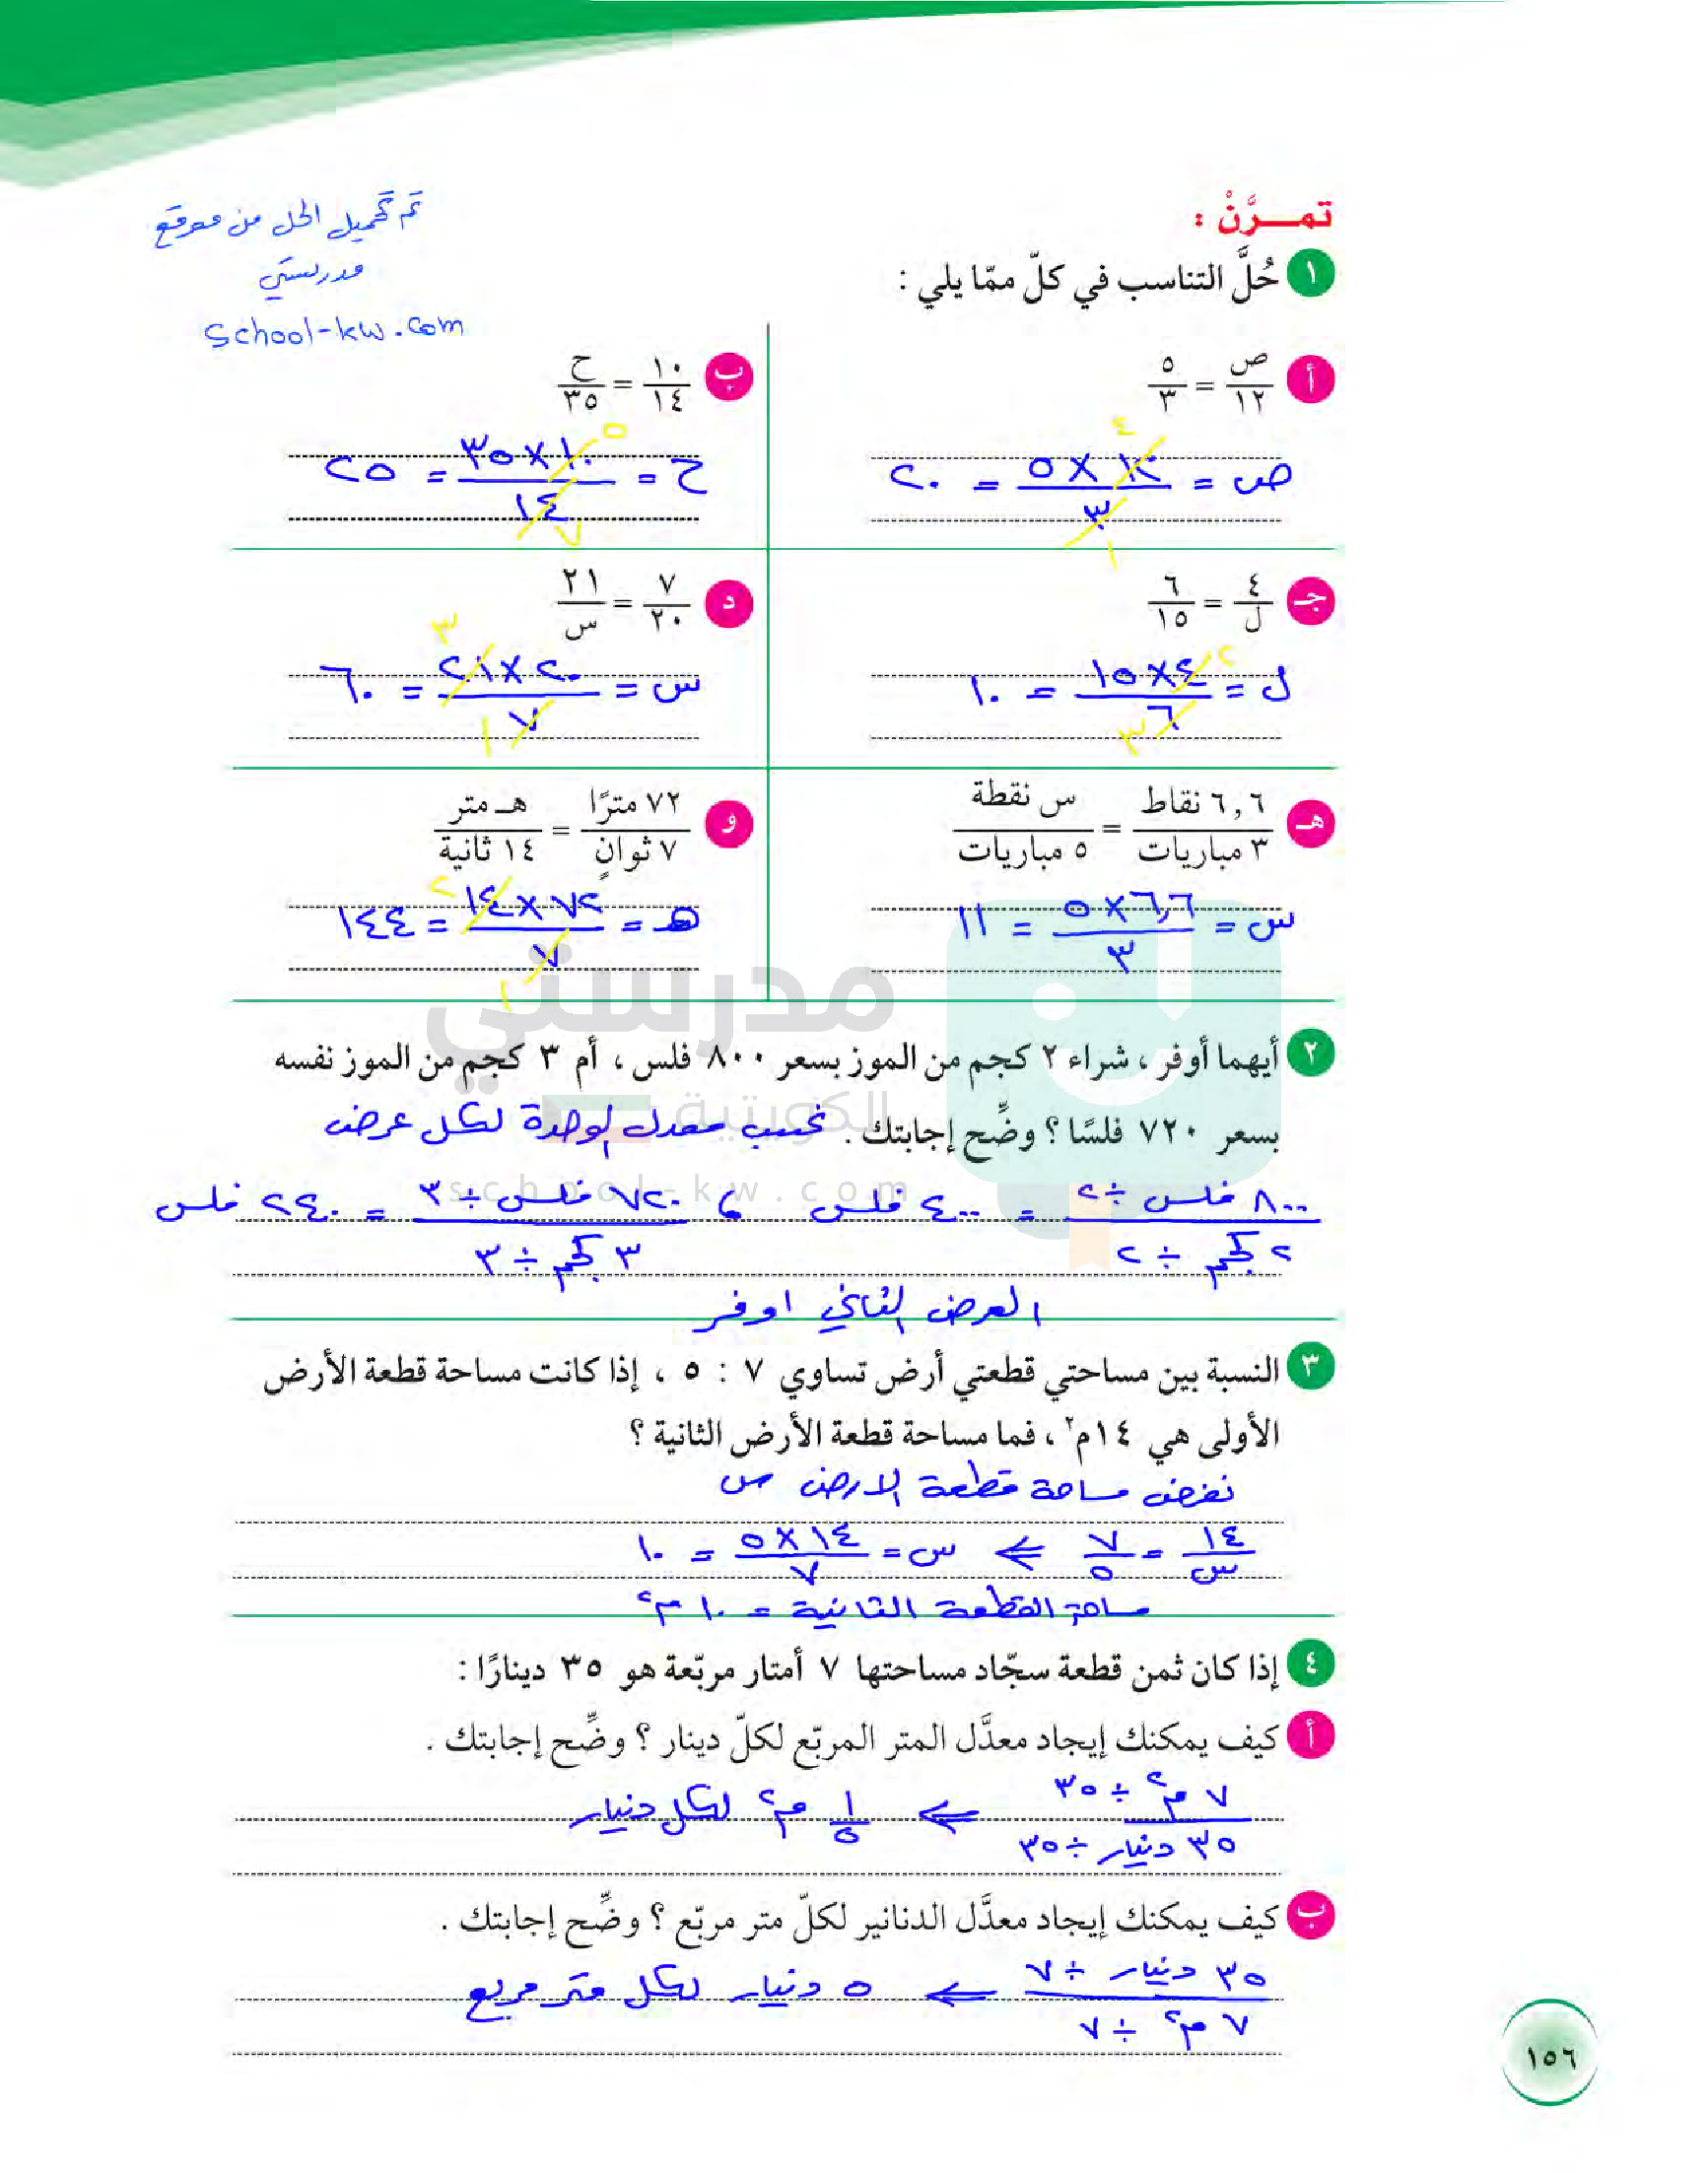 تم تحميل الحل من موقع
مدرستي
school-kw.com
تمـــرَّنْ :
١ حُلَّ التناسب في كلّ ممّا يلي :
أ ص/١٢ = ٥/٣
ص = ١٢ × ٥ / ٣ = ٢٠
٤
١
ب ١٠/١٤ = ح/٣٥
ح = ١٠ × ٣٥ / ١٤ = ٢٥
٥
٧
جـ ٤/ل = ٦/١٥
ل = ٤ × ١٥ / ٦ = ١٠
٢
٣
د ٧/٢٠ = ٢١/س
س = ٢٠ × ٢١ / ٧ = ٦٠
٣
١
هـ ٦,٦ نقاط / ٣ مباريات = س نقطة / ٥ مباريات
س = ٦,٦ × ٥ / ٣ = ١١
و ٧٢ مترًا / ٧ ثوانٍ = هـ متر / ١٤ ثانية
هـ = ٧٢ × ١٤ / ٧ = ١٤٤
٢
١
مدرستي
الكويتية
school-kw.com
٢ أيهما أوفر ، شراء ٢ كجم من الموز بسعر ٨٠٠ فلس ، أم ٣ كجم من الموز نفسه
بسعر ٧٢٠ فلسًا ؟ وضِّح إجابتك . نحسب معدل الوحدة لكل عرض
٨٠٠ فلس ÷ ٢ / ٢ كجم ÷ ٢ = ٤٠٠ فلس ، ٧٢٠ فلس ÷ ٣ / ٣ كجم ÷ ٣ = ٢٤٠ فلس
العرض الثاني اوفر
٣ النسبة بين مساحتي قطعتي أرض تساوي ٧ : ٥ ، إذا كانت مساحة قطعة الأرض
الأولى هي ١٤م٢ ، فما مساحة قطعة الأرض الثانية ؟
نفرض مساحة قطعة الارض س
١٤/س = ٧/٥ ⇐ س = ١٤ × ٥ / ٧ = ١٠
مساحة القطعة الثانية = ١٠ م٢
٤ إذا كان ثمن قطعة سجّاد مساحتها ٧ أمتار مربّعة هو ٣٥ دينارًا :
أ كيف يمكنك إيجاد معدَّل المتر المربّع لكلّ دينار ؟ وضِّح إجابتك .
٧ م٢ ÷ ٣٥ / ٣٥ دنيار ÷ ٣٥ ⇐ ١/٥ م٢ لكل دنيار
ب كيف يمكنك إيجاد معدَّل الدنانير لكلّ متر مربّع ؟ وضِّح إجابتك .
٣٥ دنيار ÷ ٧ / ٧ م٢ ÷ ٧ ⇐ ٥ دنيار لكل متر مربع
١٥٦